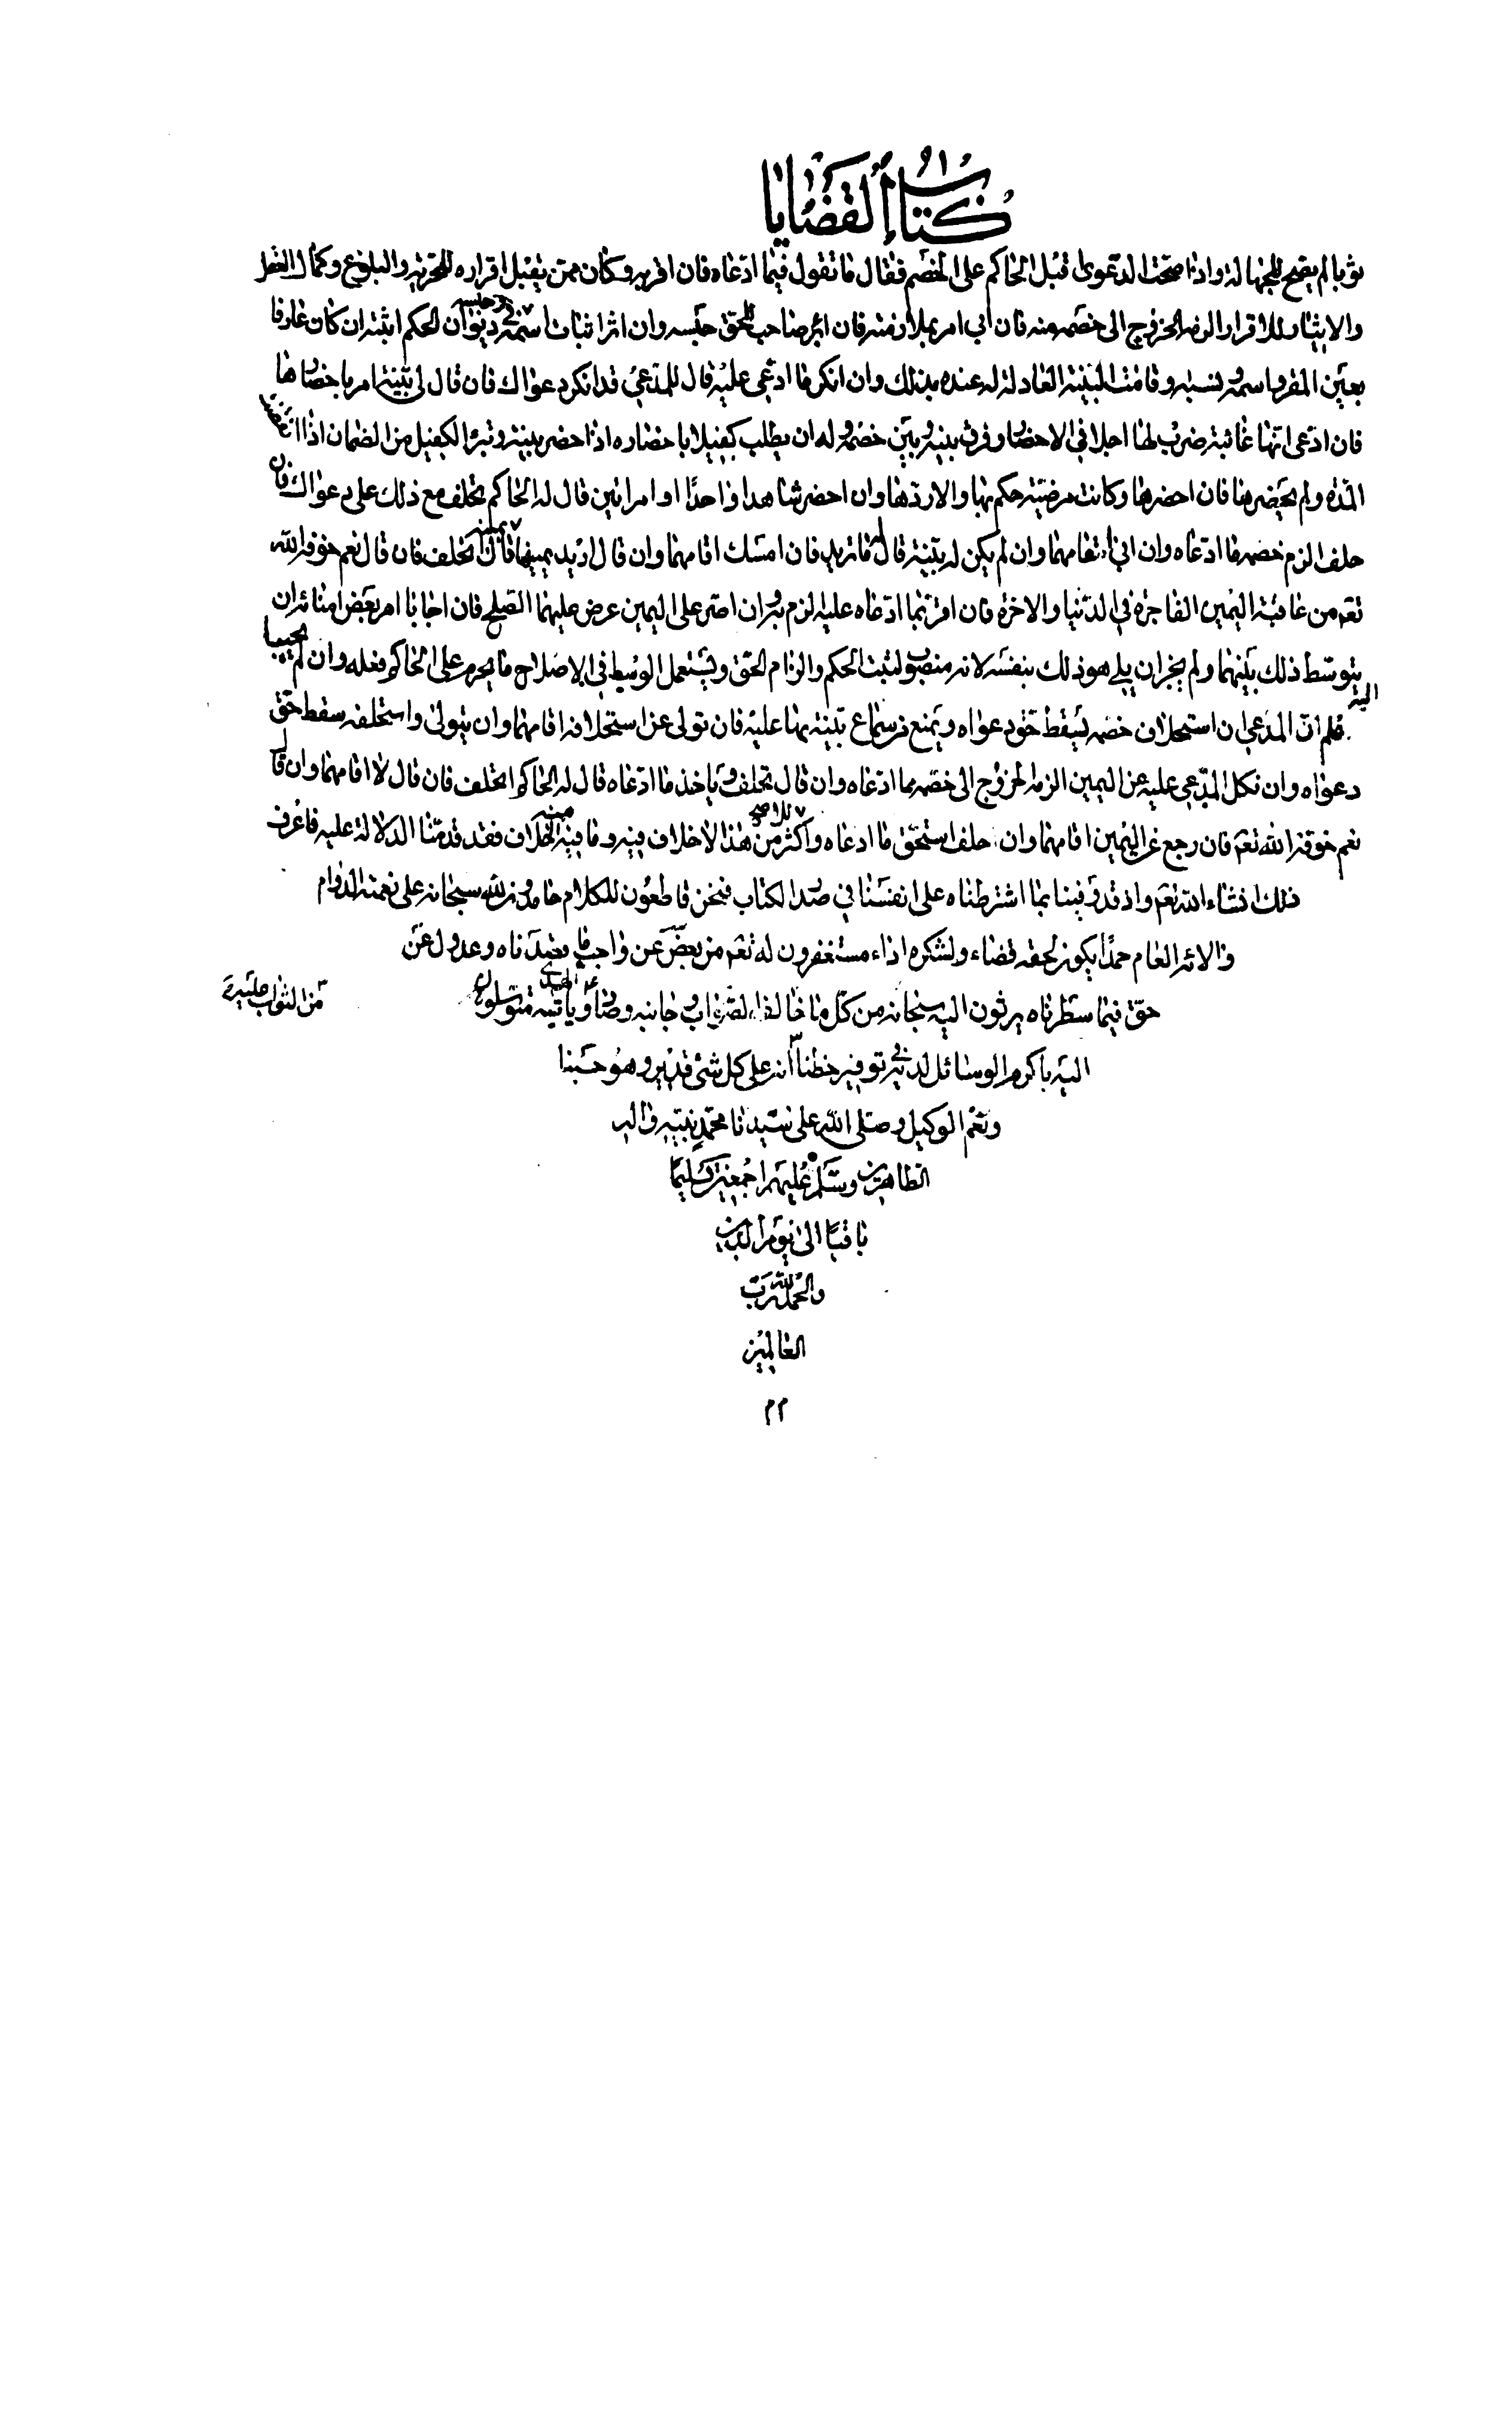 كتاب القضايا
ثوبا لم يصح للجهالة واذا صحت الدعوى اقبل الحاكم على الخصم فقال ما تقول فيما ادعاه فان اقر به وكان ممن يقبل اقراره للحرية والبلوغ وكمال العقل
والايثار للاقرار الزمه الخروج الى خصمه منه فان ابى امر بملازمته فان اثر صاحب الحق حبسه حبسه وان اثر اثبات اسمه في ديوان الحكم اثبته ان كان عارفا
بعين المقر واسمه ونسبه او قامت البينة العادلة له عنده بذلك وان انكر ما ادعى عليه قال للمدعي قد انكر دعواك فان قال لي بينة امر باحضارها
فان ادعى انها غائبة ضرب لها اجلا في الاحضار وفرق بينه وبين خصمه وله ان يطلب كفيلا باحضاره اذا احضر بينته وتبرا الكفيل من الضمان اذا انقضت
المدة ولم يحضرها فان احضرها وكانت مرضية حكم بها والا ردها وان احضر شاهدا واحدا او امراتين قال له الحاكم تحلف مع ذلك على دعواك فان
حلف الزم خصمه ما ادعاه وان ابى اقامهما وان لم يكن له بينة قال له ما تريد فان امسك اقامهما وان قال اريد يمينه قال تحلف فان قال نعم خوفه الله
تعم من عاقبة اليمين الفاجرة في الدنيا والاخرة فان اقر بما ادعاه عليه لزم به وان اصر على اليمين عرض عليهما الصلح فان اجابا امر بعض امنائه ان
يتوسط ذلك بينهما ولم يجز ان يلي هو ذلك بنفسه لانه منصوب لثبت الحكم والزام الحق ويستعمل الوسيط في الاصلاح ما يحرم على الحاكم فعله وان لم يجيبا
اليه
فلم ان المدعي ان استحلاف خصمه يسقط حق دعواه ويمنع من سماع بينة بها عليه فان تولى عن استحلافه اقامهما وان يتولى واستحلفه سقط حق
دعواه وان نكل المدعي عليه عن اليمين الزمه الخروج الى خصمه مما ادعاه وان قال تحلف وياخذ ما ادعاه قال له الحاكم اتحلف فان قال لا اقامهما وان قال
نعم خوفه الله تعم فان رجع عن اليمين اقامهما وان حلف استحق ما ادعاه واكثر من هذا لا خلاف فيه وما فيه الخلاف فقد قدمنا الدلالة عليه فاعرف
ذلك انشاء الله تعم واذ قد وفينا بما اشترطناه على انفسنا في صدر الكتاب فنحن قاطعون للكلام حامدون لله سبحانه على نعمته الدوام
والائه العام حمدا يكون لحقه قضاء ولشكره اداء مستغفرون له تعم من عن واجب تعمدناه وعدول عن
حق فيما سطرناه يرثون اليه سبحانه من كل ما خالف الصواب وجانبه متوسلون
من الثواب جليه
اليه باكرم الوسائل لديه في توفير حظنا انه على كل شئ قدير وهو حسبنا
ونعم الوكيل وصلى الله على سيدنا محمد نبيه واله
الطاهرين وسلم عليهم اجمعين تسليما
باقيا الى يوم الدين
والحمد لله رب
العالمين
م م